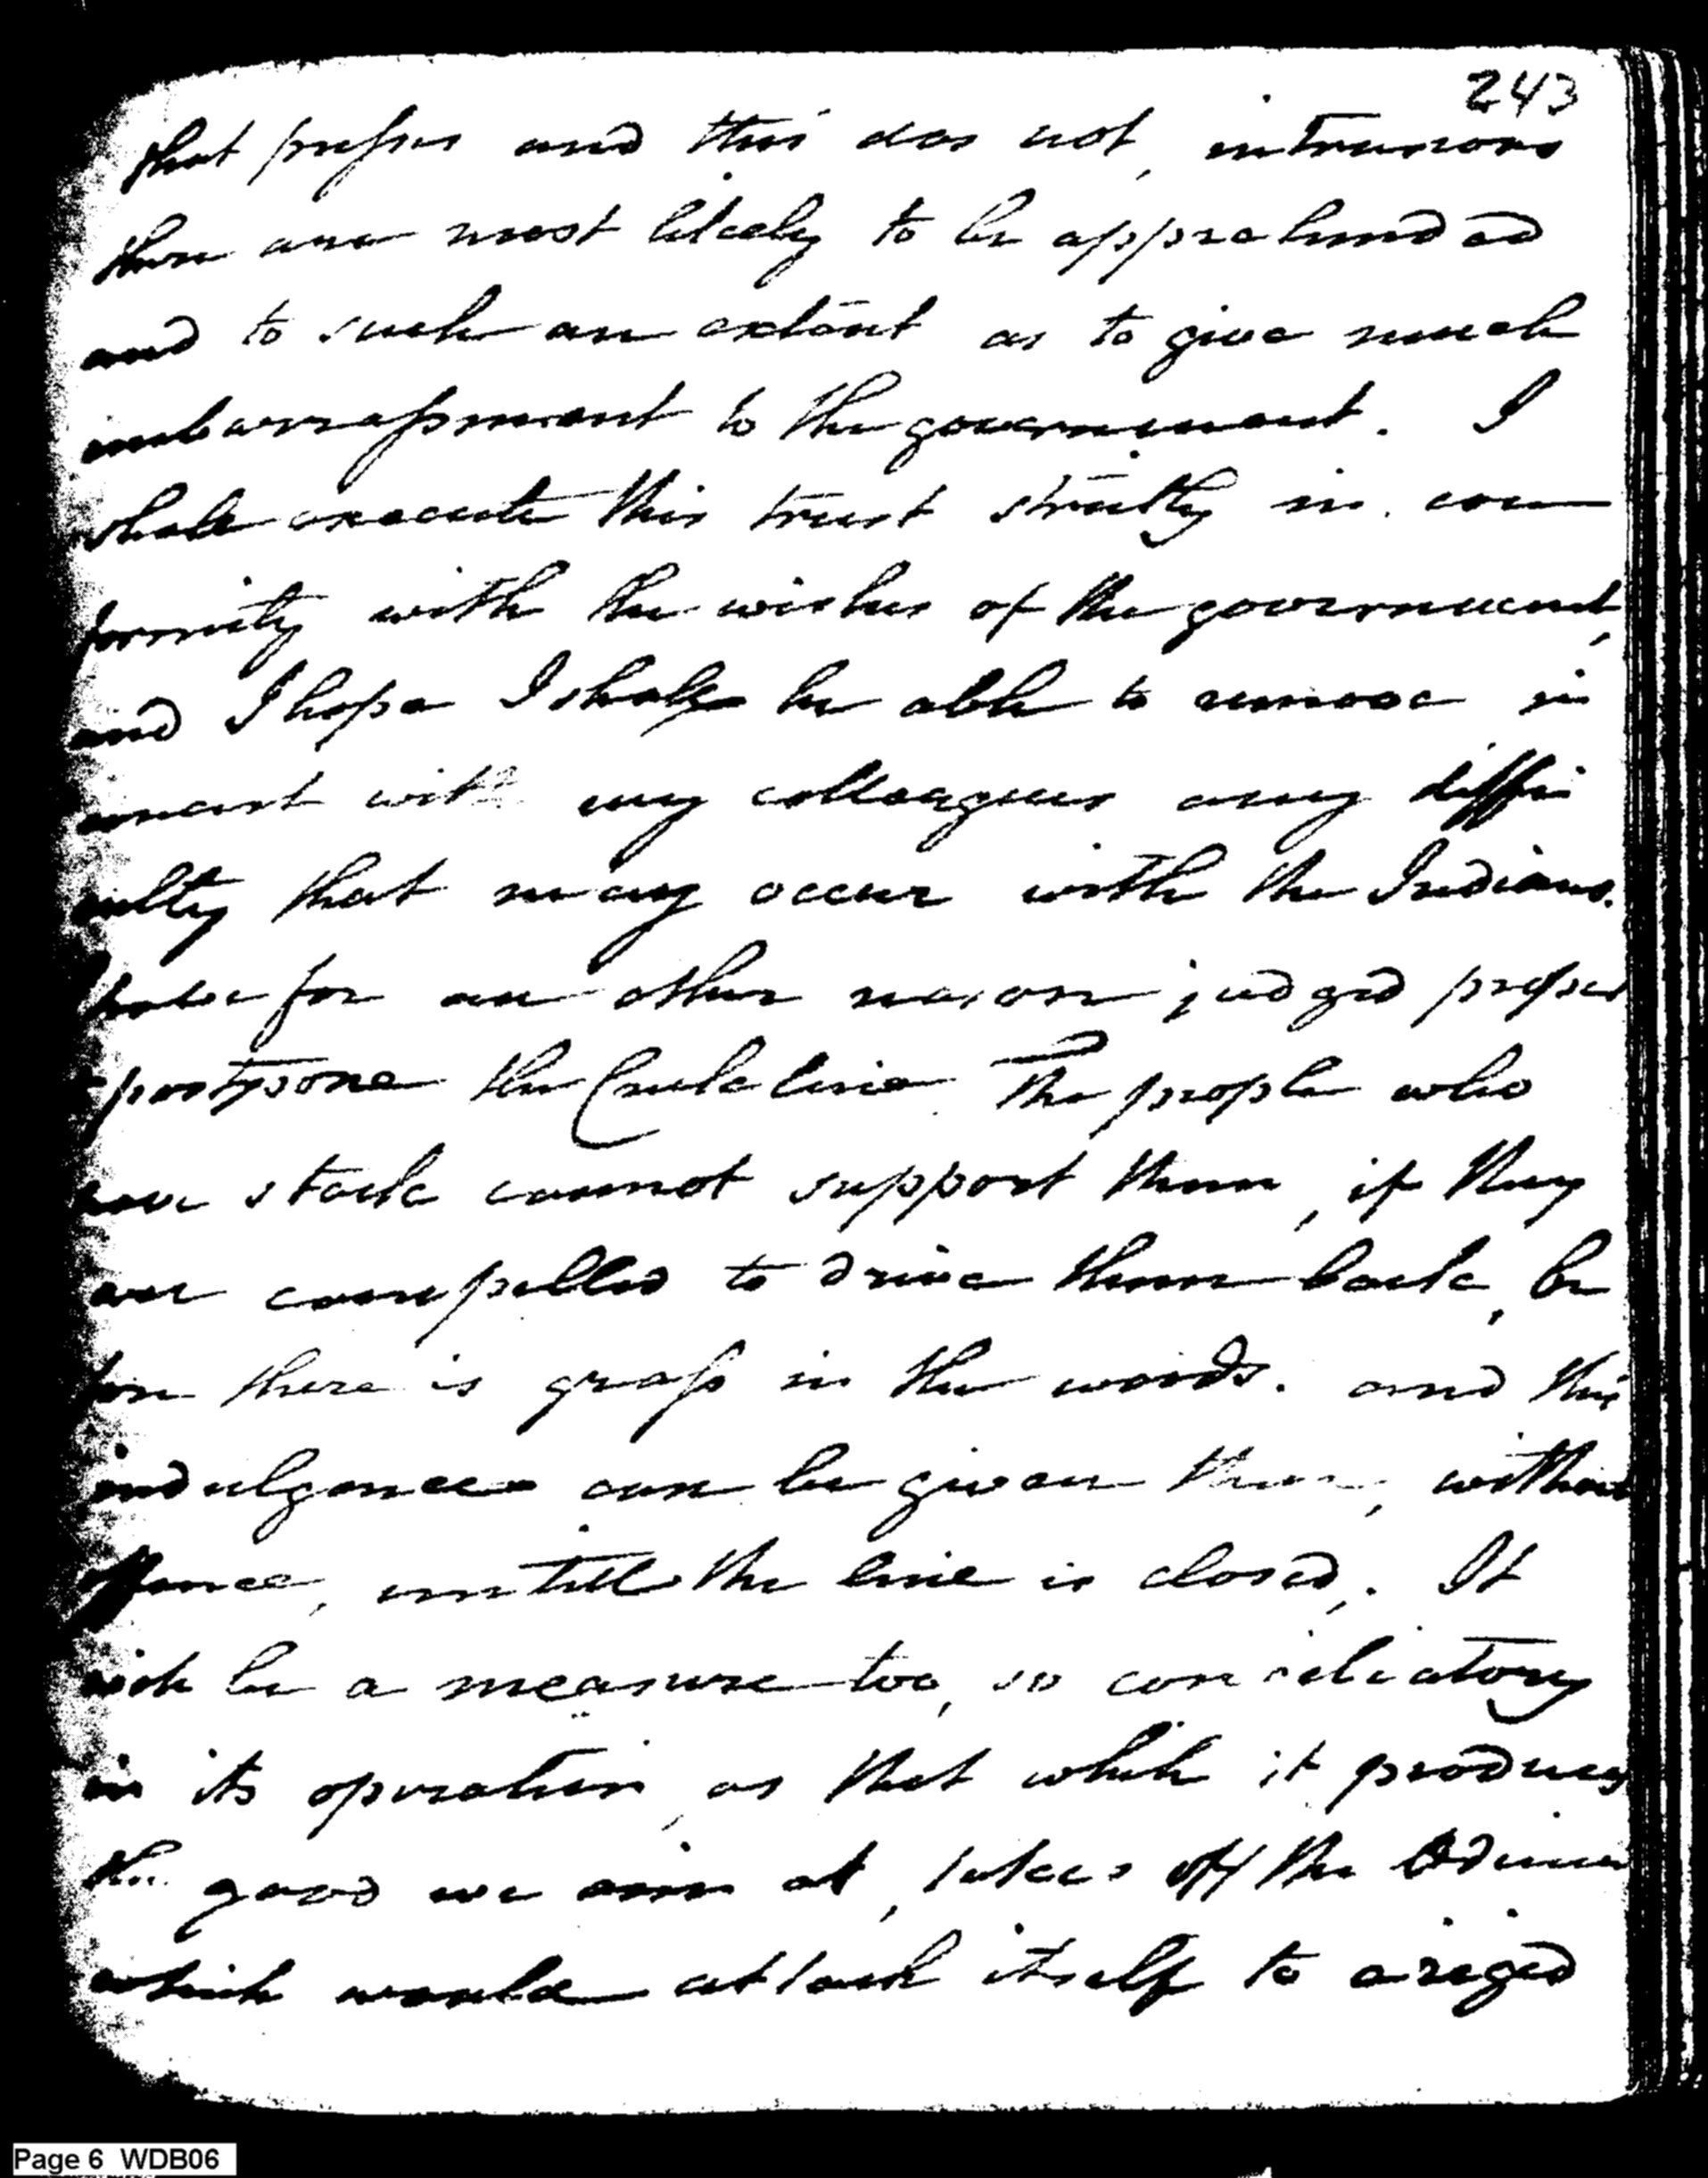 243
that presses and this does not, intrusions
there are most likely to be apprehended
and to such an extent as to give much
embarrassment to the government. I
shall execute this trust strictly in con
formity with the wishes of the government,
and I hope I shall be able to remove in
concert with my colleagues any diffi
culty that may occur with the Indians.
for an other reason judged proper
postpone the Creek line. The people who
have stock cannot support them, if they
are compelled to drive them back, be
fore there is grass in the woods. and this
indulgence can be given them, without
offence, untill the line is closed. It
will be a measure too, so conciliatory
in its operation, as that while it produces
the good we aim at, takes off the odium
which would attach itself to a riged
Page 6 WDB06